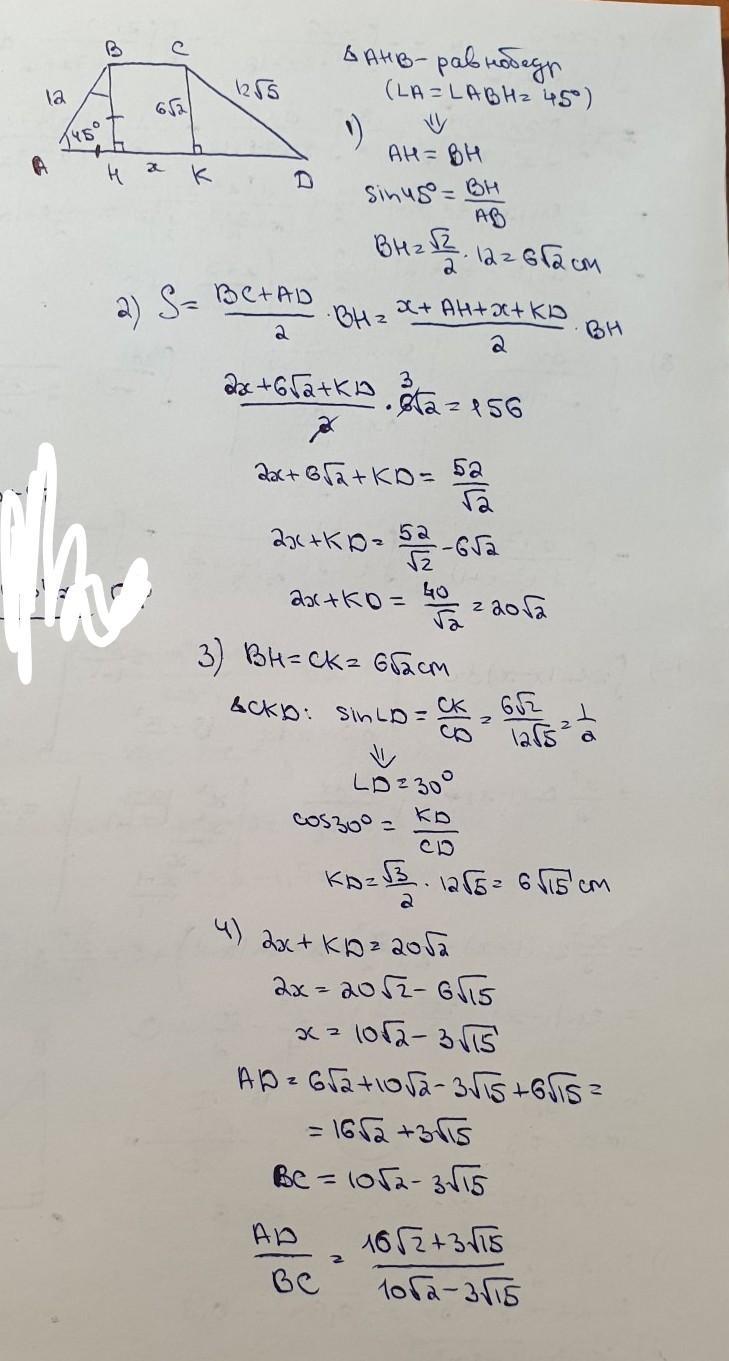 B C
12 6√2 12√5
45°
A H x K D
△AHB - равнобедр
(∠A = ∠ABH = 45°)
⇓
1) AH = BH
sin45° = BH/AB
BH = √2/2 · 12 = 6√2 см
2) S = (BC+AD)/2 · BH = (x+AH+x+KD)/2 · BH
(2x+6√2+KD)/2 · 6√2 = 156
3
2x+6√2+KD = 52/√2
2x+KD = 52/√2 - 6√2
2x+KD = 40/√2 = 20√2
3) BH = CK = 6√2 см
△CKD: sin∠D = CK/CD = 6√2/12√5 = 1/2
⇓
∠D = 30°
cos30° = KD/CD
KD = √3/2 · 12√5 = 6√15 см
4) 2x + KD = 20√2
2x = 20√2 - 6√15
x = 10√2 - 3√15
AD = 6√2+10√2 - 3√15 + 6√15 =
= 16√2 + 3√15
BC = 10√2 - 3√15
AD/BC = (16√2+3√15)/(10√2-3√15)